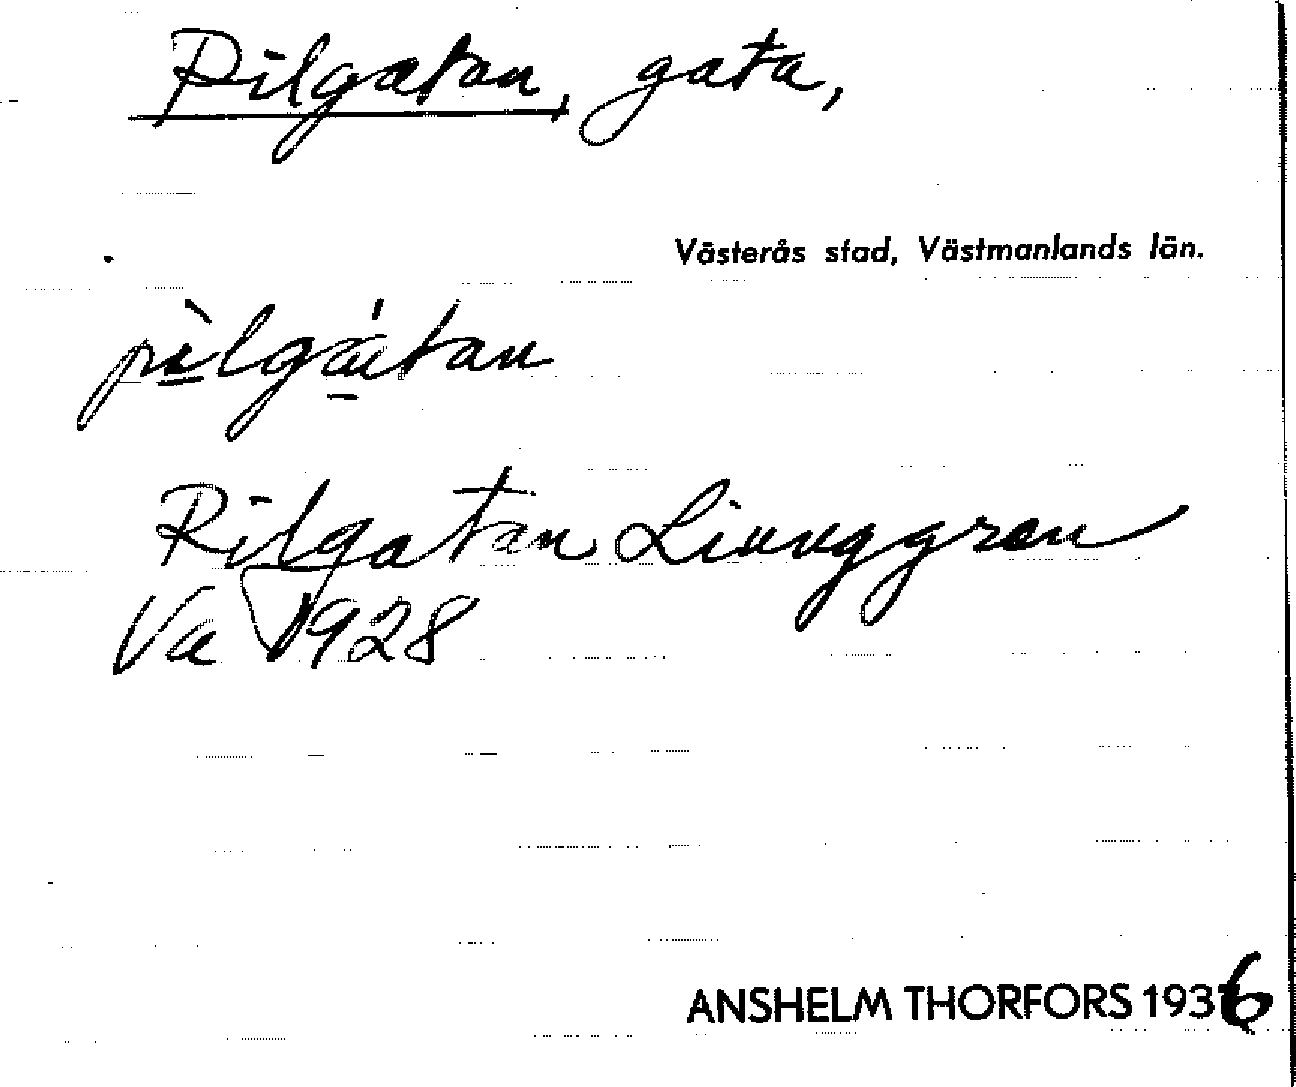 Pilgatan, gata,
Västerås stad, Västmanlands län.
pìlgátan
Pilgatan Ljunggren
Va 1928
ANSHELM THORFORS 1936